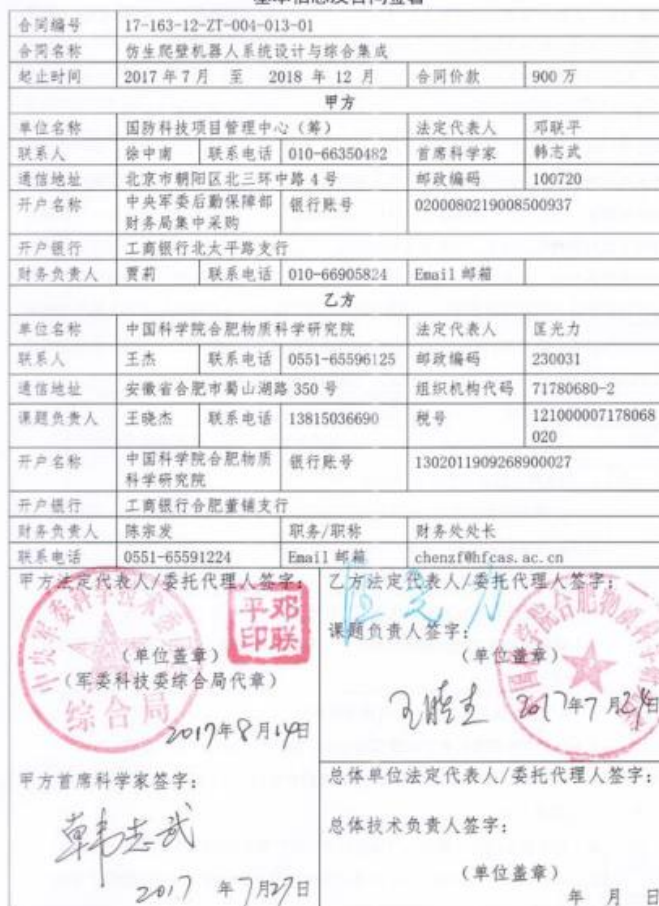 基本信息及合同签署
合同编号 17-163-12-ZT-004-013-01
合同名称 仿生爬壁机器人系统设计与综合集成
起止时间 2017年7月 至 2018年12月 合同价款 900万
甲方
单位名称 国防科技项目管理中心（筹） 法定代表人 邓联平
联系人 徐中南 联系电话 010-66350482 首席科学家 韩志武
通信地址 北京市朝阳区北三环中路4号 邮政编码 100720
开户名称 中央军委后勤保障部 银行账号 0200080219008500937
财务局集中采购
开户银行 工商银行北太平路支行
财务负责人 贾莉 联系电话 010-66905824 Email 邮箱
乙方
单位名称 中国科学院合肥物质科学研究院 法定代表人 匡光力
联系人 王杰 联系电话 0551-65596125 邮政编码 230031
通信地址 安徽省合肥市蜀山湖路350号 组织机构代码 71780680-2
课题负责人 王晓杰 联系电话 13815036690 税号 121000007178068
020
开户名称 中国科学院合肥物质 银行账号 1302011909268900027
科学研究院
开户银行 工商银行合肥董铺支行
财务负责人 陈宗发 职务/职称 财务处处长
联系电话 0551-65591224 Email 邮箱 chenzf@hfcas.ac.cn
甲方法定代表人/委托代理人签字：
邓联平印
（单位盖章）
（军委科技委综合局代章）
综合局
2017年8月14日
乙方法定代表人/委托代理人签字：
匡光力
课题负责人签字：
（单位盖章）
王晓杰 2017年7月24日
甲方首席科学家签字：
韩志武
2017 年7月27日
总体单位法定代表人/委托代理人签字：
总体技术负责人签字：
（单位盖章）
年 月 日